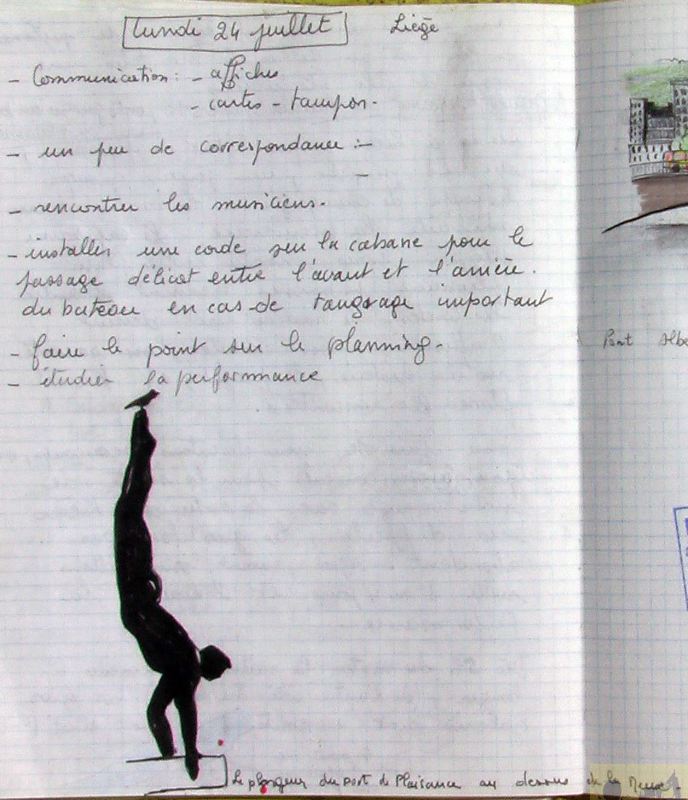 lundi 24 juillet Liège
- Communication : - affiches
- cartes - tampon.
- un peu de correspondance : -
-
- rencontrer les musiciens.
- installer une corde sur la cabane pour le
passage délicat entre l'avant et l'arrière.
du bateau en cas de tangage important
- faire le point sur le planning.
- étudier la performance
Le plongeur du port de Plaisance au dessus de la Meuse
Pont Albe